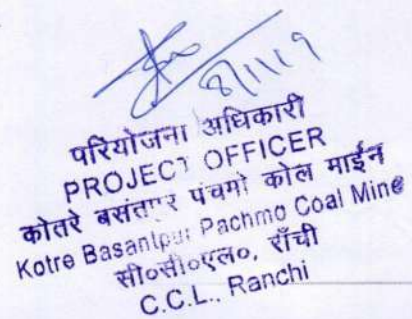 8/11/19
परियोजना अधिकारी
PROJECT OFFICER
कोतरे पंचमो कोल माईन
Kotre Basantpur Pachmo Coal Mine
सी०सी०एल०, राँची
C.C.L., Ranchi